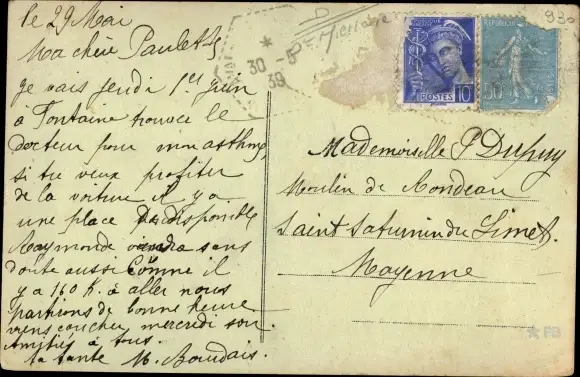 le 29 Mai
Ma chère Paulette
je vais jeudi 1er juin
à Fontaine trouver le
docteur pour mon asthme,
si tu veux profiter
de la voiture il y a
une place disponible
Raymonde viendra sans
doute aussi comme il
y a 160 k. à aller nous
partirons de bonne heure
viens coucher mercredi soir
Amitiés à tous.
ta tante M. Boudais.
30 - 5
39
POSTES 10
50
930
Mademoiselle P Dupuy
Moulin de Condeau
Saint Saturnin du Limet.
Mayenne
FB